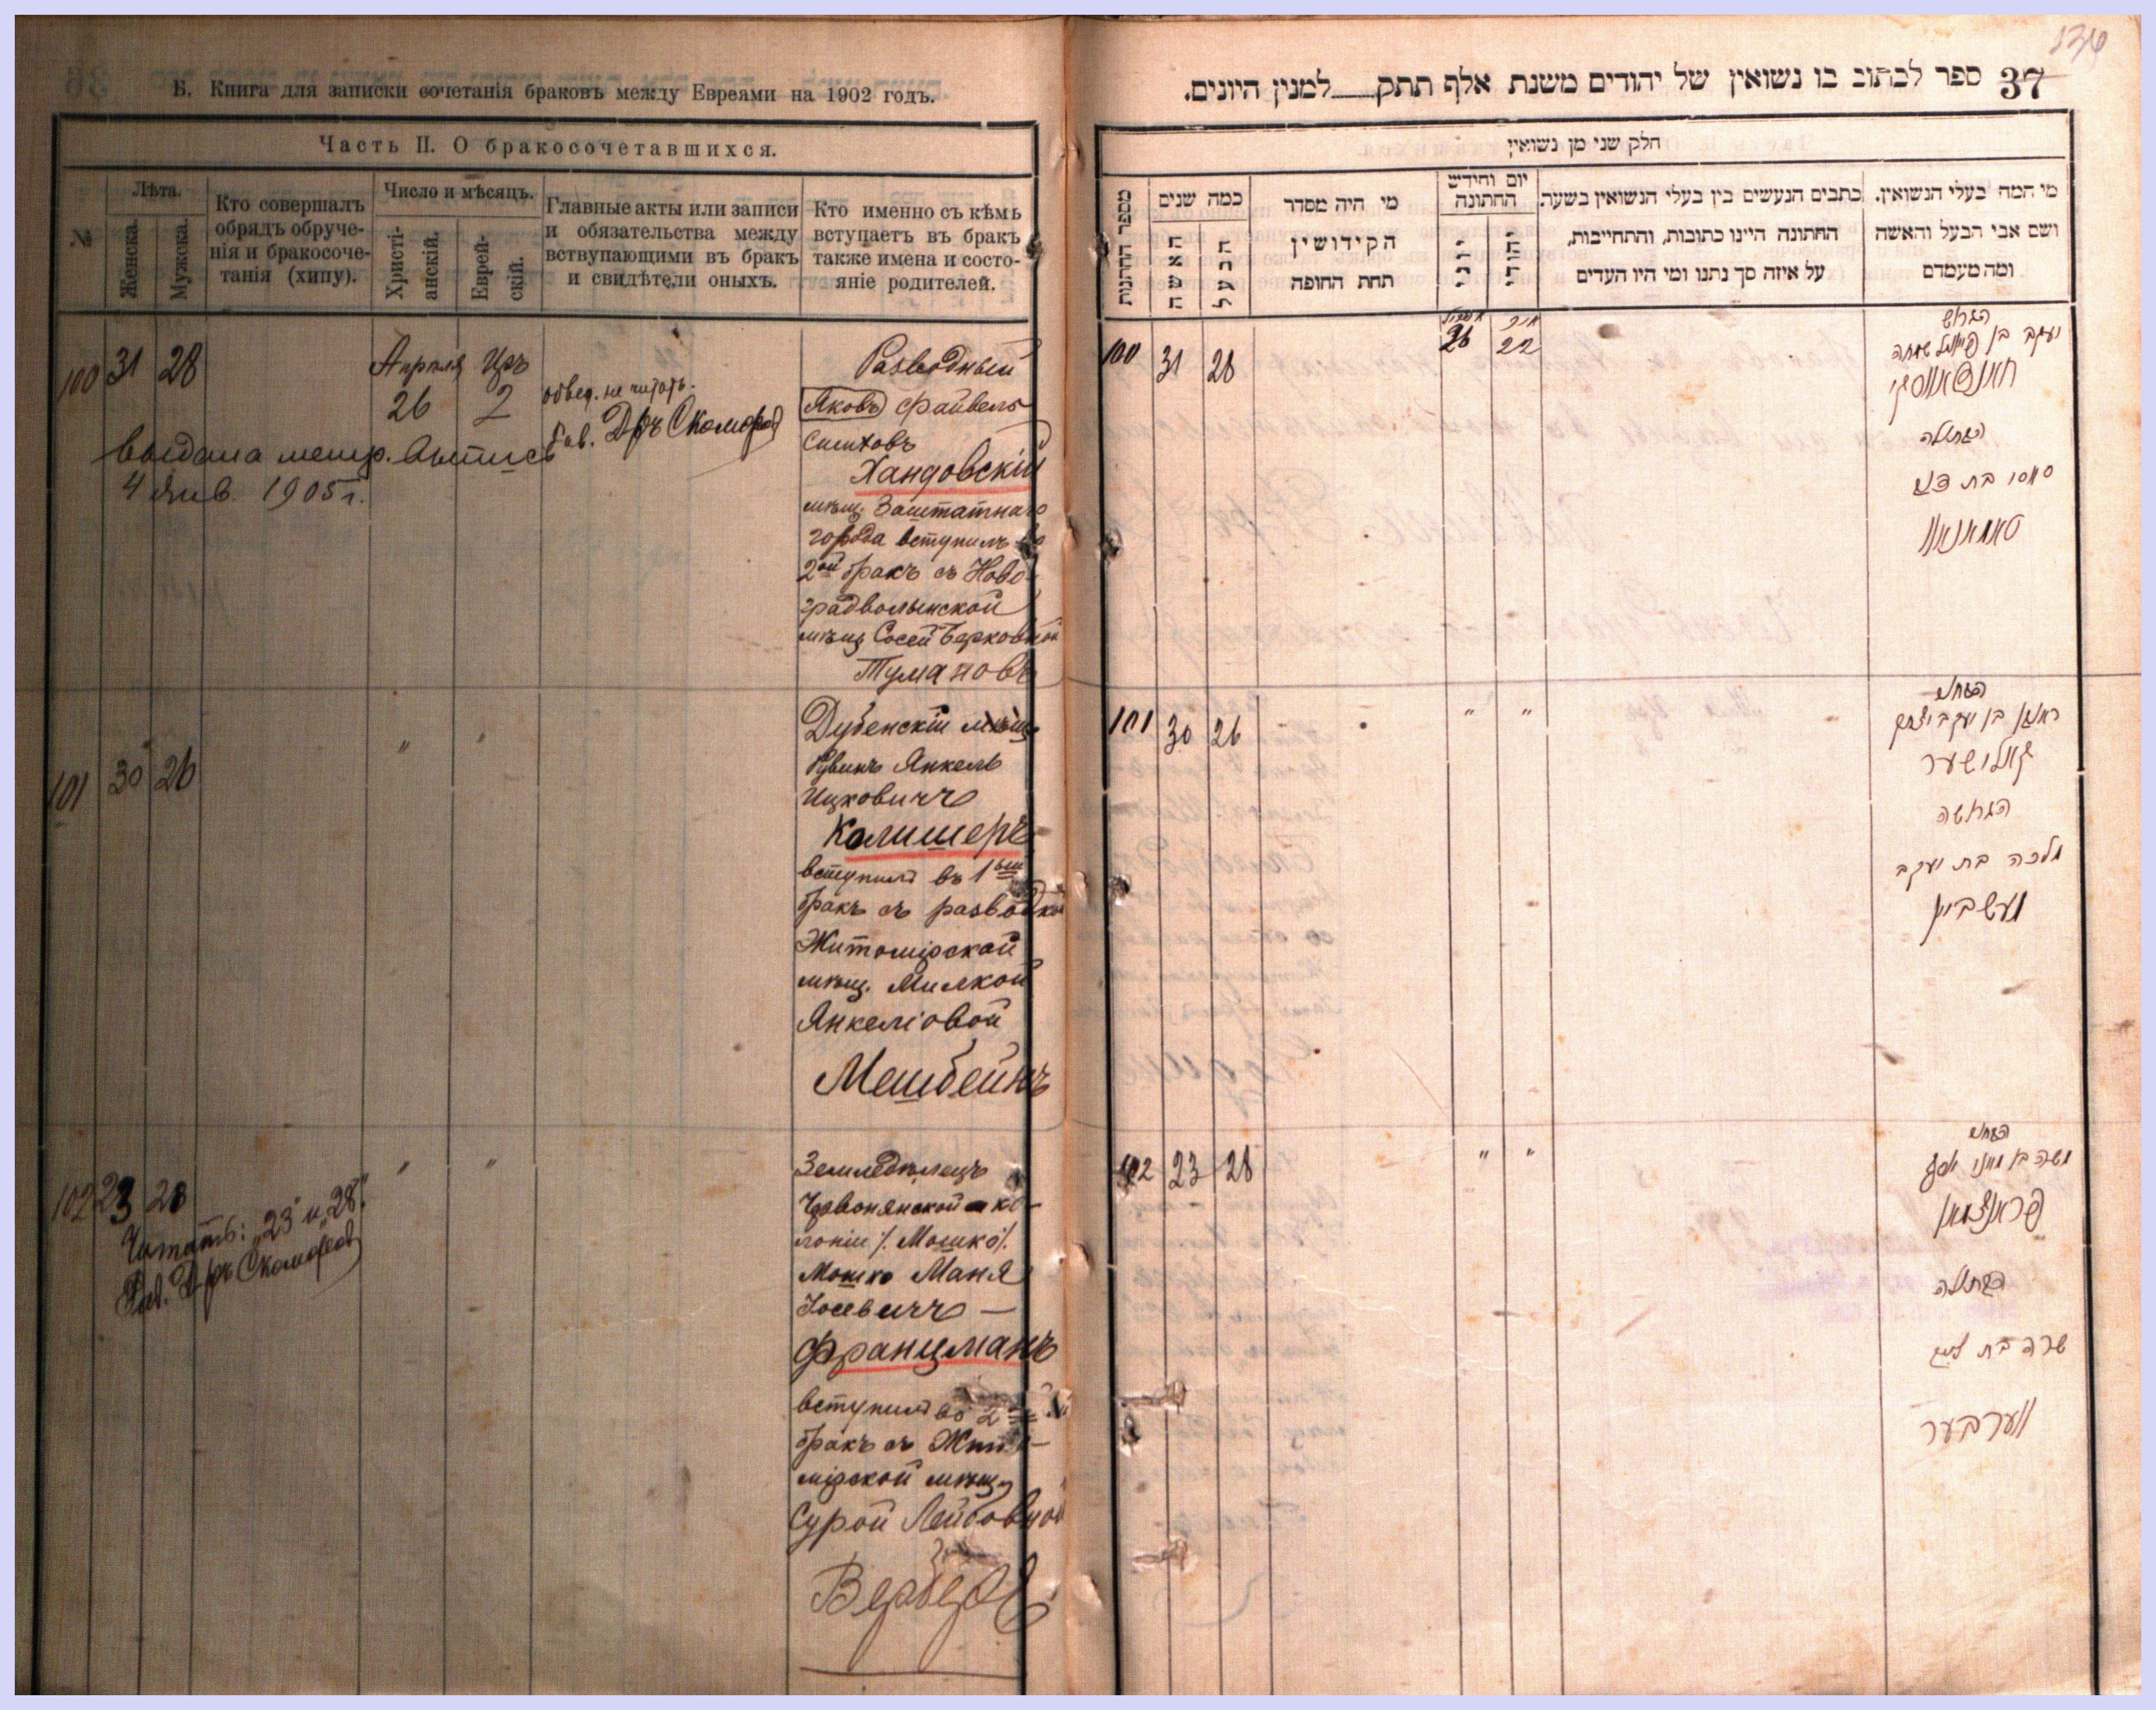 Б. Книга для записки сочетанія браковъ между Евреями на 1902 годъ.
Часть II. О бракосочетавшихся.
№
Лѣта.
Женска.
Мужска.
Кто совершалъ
обрядъ обруче-
нія и бракосоче-
танія (хипу).
Число и мѣсяцъ.
Христі-
анскій.
Еврей-
скій.
Главные акты или записи
и обязательства между
вствупающими въ бракъ
и свидѣтели оныхъ.
Кто именно съ кѣмъ
вступаетъ въ бракъ
также имена и состо-
яніе родителей.
100 31 28
Апрѣля
26
2
обвед. не читать.
Рав. Д-ръ Скоморов
выдана метр. выпись
4 Янв. 1905 г.
Разводный
Яковъ Файвель
Хандовскій
мѣщ. Заштатнаго
города вступилъ во
2ой бракъ съ Ново-
градволынской
мѣщ. Сосей Берковной
Тумановъ
101 30 26
" "
Дубенскій мѣщ.
Рувинъ Янкель
Ицковичъ
Калишеръ
вступилъ въ 1ый
бракъ съ разводкой
Житомірской
мѣщ. Милкой
Янкеліовой
Мешбейнъ
102 23 28
" "
Читать: „23 и „28".
Рав. Д-ръ Скоморов
Земледѣлецъ
Червонянской ко-
лоніи /. Мошко /.
Мошко Маня
Іосевичъ —
Францманъ
вступилъ во 2ой
бракъ съ Жито-
мірской мѣщ.
Сурой Лейбовной
Верберъ
136
37 ספר לכתוב בו נשואין של יהודים משנת אלף תתק למנין היונים.
חלק שני מן נשואין
מספר הדרגות
כמה שנים
האשה
הבעל
מי היה מסדר
הקידושין
תחת החופה
יום וחידש
החתונה
יוני
יהודי
כתבים הנעשים בין בעלי הנשואין בשעת
החתונה היינו כתובות, והתחייבות,
על איזה סך נתנו ומי היו העדים
מי המה בעלי הנשואין.
ושם אבי הבעל והאשה
ומה מעמדם
100 31 28
26 22
הגרוש
יעקב בן פייוול שמחה
הבתולה
סאסי בת
טאמאנאוו
101 30 26
" "
הבחור
ראובן בן יעקב יצחק
קאלישער
הגרושה
מלכה בת יעקב
מעשביין
102 23 28
" "
הבחור
משה בן מאני יוסף
פראנצמאן
הבתולה
שרה בת ליב
ווערבער